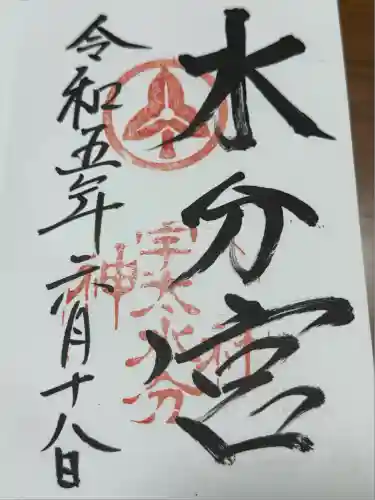 水分宮
宇太水分
神
令和五年六月十八日